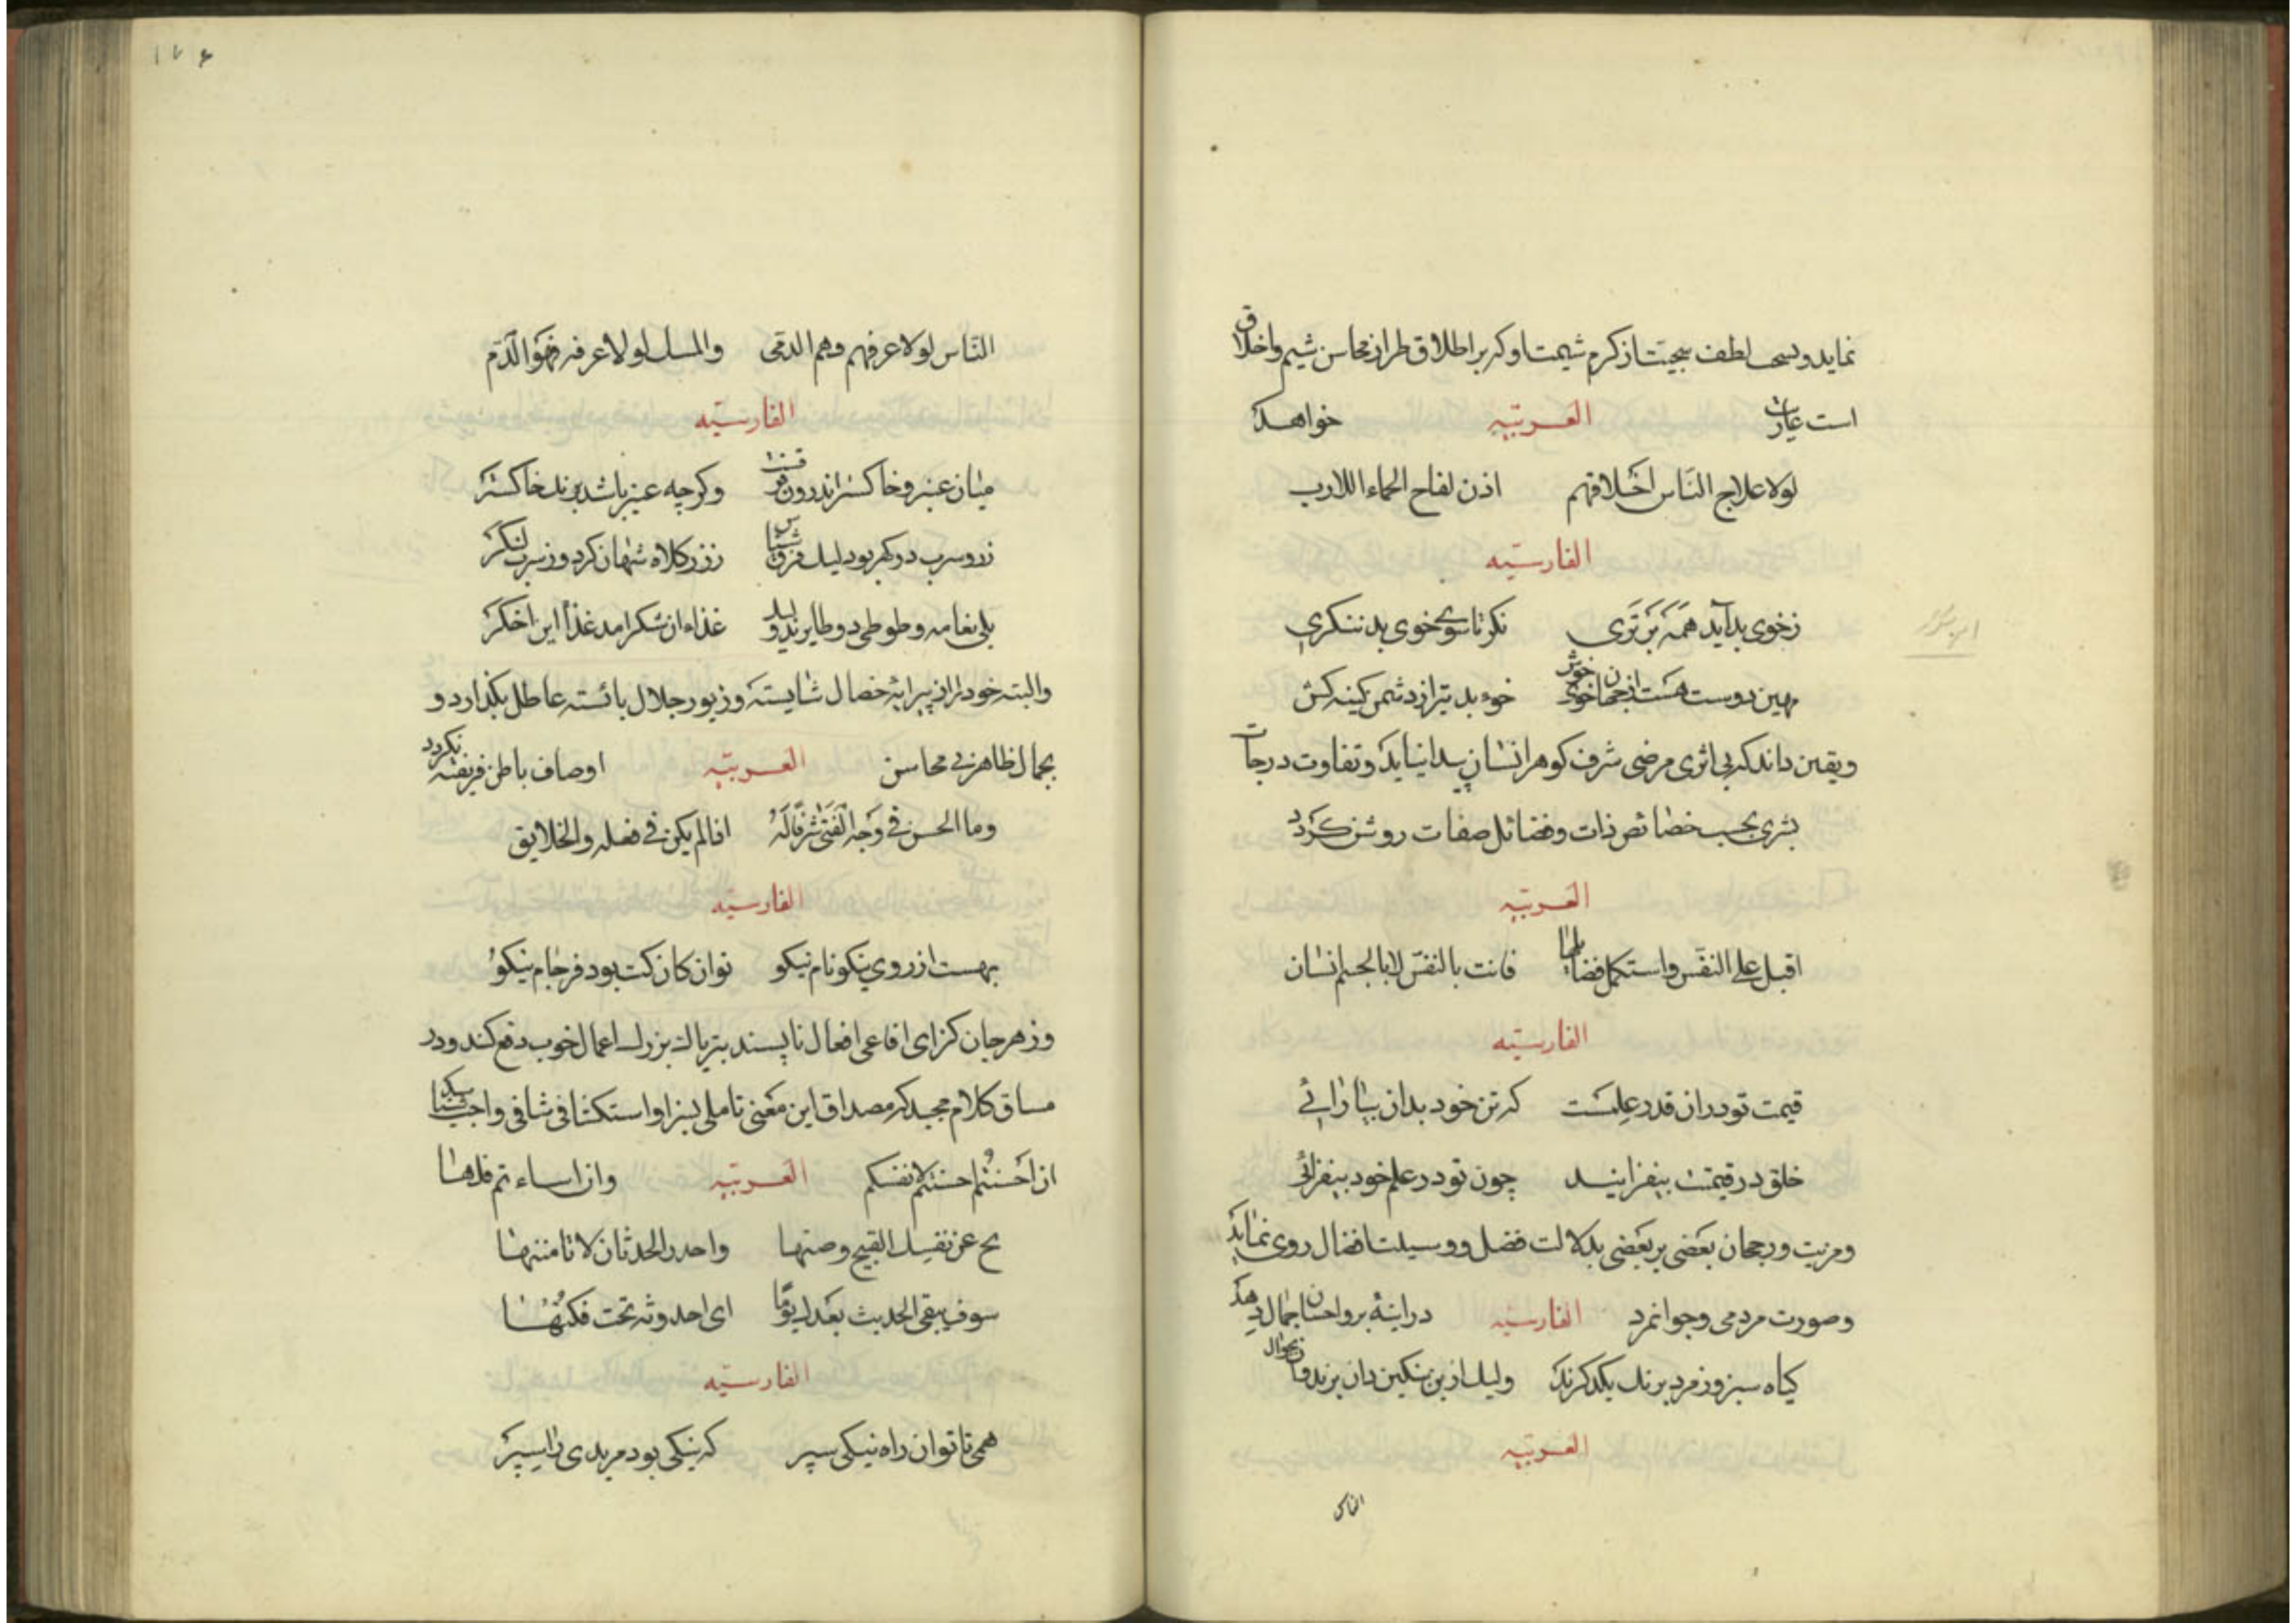 نماید و لطف سجیت از کرم شیمت او که بر اطلاق طراز محاسن شیم و اخلاق
است عیارت العربیه خواهد
لولا علاج الناس اخلاقهم اذن لفاح الحماء اللازب
الفارسیه
ز خوی بد آید همه بتری نکر تا سوی خوی بد ننکری
بهین دوست هست از جهان خوی خوش خوء بد بتر از دشمن کینه کش
و یقین داند که بی اثری مرضی شرف کوهر انسان پیدا نیاید و تفاوت درجات
بشری بحسب خصائص ذات و فضائل صفات روشن نکردد
العربیه
اقبل علی النفس و استکمل فضایلها فانت بالنفس لا بالجسم انسان
الفارسیه
قیمت تو در ان قدر علمست که تن خود بدان بیارائی
خلق در قیمتت بیفزایند چون تو در علم خود بیفزائی
و مزیت و رجحان بعضی بر بعضی بدلالت فضل و وسیلت افضال روی نماید
و صورت مردمی و جوانمرد الفارسیه در اینهٔ بر و احسان جمال دهد
کیاه سبز و زمرد برنک یکدکرند ولیک ازین بنکین دان برند و زان بجوال
العربیه
الناس
۱۷۶
الناس لولا عرفهم وهم الدمی والمسک لولا عرفه فهو الدم
الفارسیه
میان عنبر و خاکستر اندرون فرقست وکرچه عنبر باشد برنک خاکستر
زر و سرب دو کهر بود لیک فرق شناس ز زر کلاه شهان کرد وز سرب لنکر
بلی نعامه و طوطی دو طایرند ولیک غذاء ان شکر امد غذأ این اخکر
والبته خود را از پیرایهٔ خصال شایسته و زیور جلال بائسته عاطل نکذارد و
بجمال ظاهر بی محاسن العربیه اوصاف باطن فریفته نکردد
وما الحسن فی وجه الفتی شرفا له اذا لم یکن فی فعله والخلایق
الفارسیه
بهست از روی نیکو نام نیکو توان کان کت بود فرجام نیکو
وزهر جان کزای افاعی افعال ناپسند بتریاک بزرک اعمال خوب دفع کند و در
مساق کلام مجید که مصداق این معنی تاملی بسزا و استکشافی شافی واجب شناسد
ان احسنتم احسنتم لانفسکم العربیه وان اساءتم فلها
نح عن نفسک القبیح وصنها واحذر الحدثان لا تامننها
سوف یبقی الحدیث بعدک یومًا ای احدوثه تحت فکنها
الفارسیه
همی تا توان راه نیکی سپر که نیکی بود مر بدی را سپر